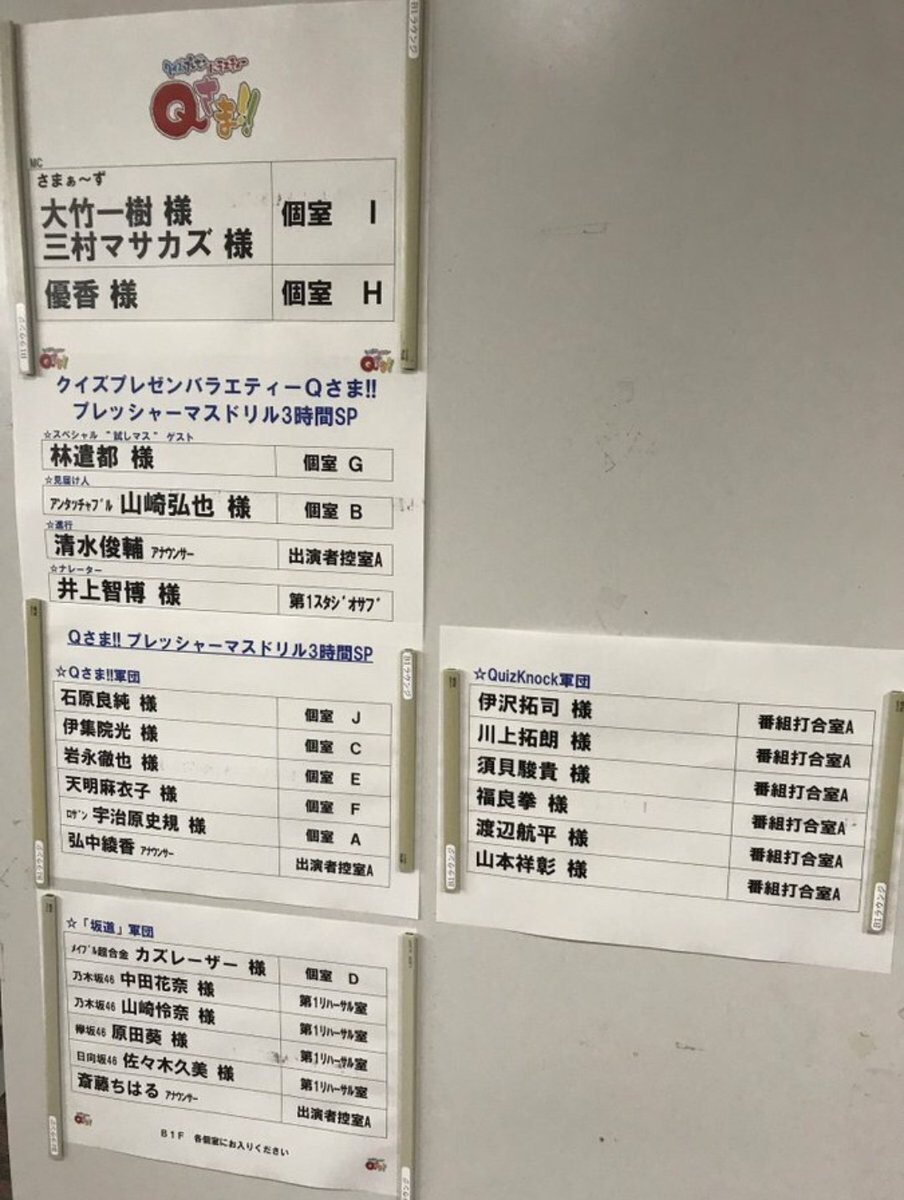 クイズプレゼンバラエティー
Qさま!!
MC
さまぁ〜ず
大竹一樹 様
三村マサカズ 様
個室 I
優香 様 個室 H
クイズプレゼンバラエティーQさま!!
プレッシャーマスドリル3時間SP
☆スペシャル "試しマス" ゲスト
林遣都 様 個室 G
☆見届け人
アンタッチャブル 山崎弘也 様 個室 B
☆進行
清水俊輔 アナウンサー 出演者控室A
☆ナレーター
井上智博 様 第1スタジオサブ
Qさま!! プレッシャーマスドリル3時間SP
☆Qさま!!軍団
石原良純 様 個室 J
伊集院光 様 個室 C
岩永徹也 様 個室 E
天明麻衣子 様 個室 F
ロザン 宇治原史規 様 個室 A
弘中綾香 アナウンサー 出演者控室A
☆QuizKnock軍団
伊沢拓司 様 番組打合室A
川上拓朗 様 番組打合室A
須貝駿貴 様 番組打合室A
福良拳 様 番組打合室A
渡辺航平 様 番組打合室A
山本祥彰 様 番組打合室A
☆「坂道」軍団
メイプル超合金 カズレーザー 様 個室 D
乃木坂46 中田花奈 様 第1リハーサル室
乃木坂46 山崎怜奈 様 第1リハーサル室
欅坂46 原田葵 様 第1リハーサル室
日向坂46 佐々木久美 様 第1リハーサル室
斎藤ちはる アナウンサー 出演者控室A
B1F 各個室にお入りください
B1ラウンジ
B1ラウンジ
B1ラウンジ
B1ラウンジ
B1ラウンジ
B1ラウンジ